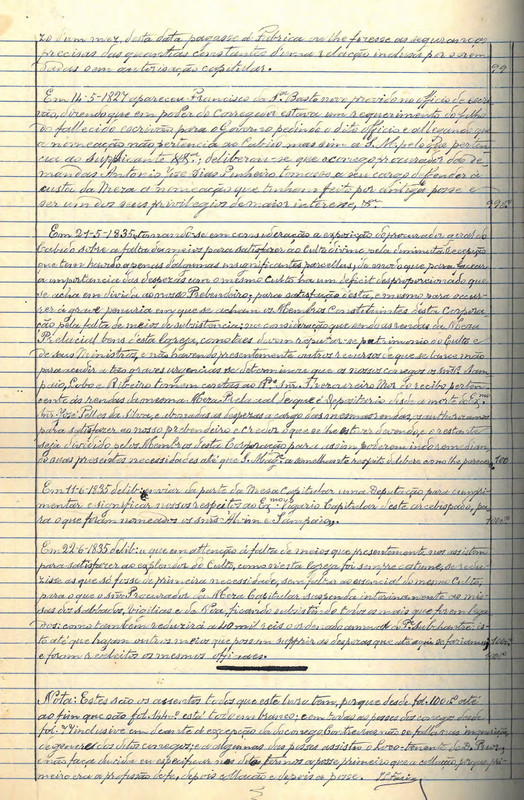 zo d'um mez, desta data pagasse á Fabrica ou lhe fizesse as seguranças
precisas das quantias constantes d'uma relação inclusa por serem
dadas sem autorisação capitular. 99
Em 14-5-1827 apareceu Francisco da S.ª Basto novo provido no officio de escri-
vão, dizendo que em poder do Corregedor estava um requerimento do filho
do fallecido escrivão para o Governo pedindo o dito officio e allegando que
a nomeação não pertencia ao Cabido mas sim a S. Mg.e pelo que perten-
cia ao supplicante; deliberou-se que o conego procurador das de-
mandas Antonio José Dias Pinheiro tomasse a seu cargo defender á
custa da Meza a nomeação que tinham feito por antiga posse e
ser um dos seus privilegios de maior interesse. 99v.º
Em 21-5-1835, tomando-se em consideração a exposição do procurador geral do
Cabido sobre a falta de meios para satisfazer ao Culto divino pela diminuta decepção
que tem havido apenas d'algumas insignificantes parcellas, de modo que para fazear
a importancia das despezas com o mesmo Culto ha um deficit desproporcionado que
se acha em divida ao nosso Prebendeiro, para satisfação desta, e mesmo para occur-
rer á grave penuria em que se acham os Membros Constituintes desta Corpora-
ção pela falta de meios de subsistencia; na consideração que sendo as rendas da Meza
Prelacial bens desta Igreja, como tres devem reputar-se patrimonio do Culto e
de seus Ministros, e não havendo presentemente outros recursos de que se lance mão
para acudir a tão graves urgencias se determinou que os nossos conegos snrs. Sam-
paio, Lobo e Ribeiro tomem contas ao R.do Snr. Thezoureiro Mór do recibo perten-
cente ás rendas da mesma Meza Prelacial de que é Depositario desde a morte do Ex.mo
Snr. José Telles da Silva, e abonadas as despezas a cargo das mesmas rendas, o authorisamos
para satisfazer ao nosso prebendeiro e credor o que se lhe estiver devendo, e o restante
seja dividido pelos Membros desta Corporação para assim poderem ir remedian-
do suas presentes necessidades até que S. Mag.e a semelhante respeito delibere como lhe parecer. 100
Em 11-6-1835 delib. enviar da parte da Mesa Capitular uma Deputação para cumpri-
mentar e significar nossos respeitos ao Ex.mo Vigario Capitular deste arcebispado, pa-
ra o que foram nomeados os snrs. Alvim e Sampaio. 100v.º
Em 22-6-1835 delib. que em attenção á falta de meios que presentemente nos assistem
para satisfazer ao esplendor do Culto, como nesta Igreja foi sempre costume, se redu-
zisse ao que só fosse de primeira necessidade, sem faltar ao essencial do mesmo Culto,
para o que o snr. Procurador da Meza Capitular suspenda interinamente as mis-
sas dos sabbados, vigilias e da Noa, ficando subsistindo todas as mais que forem lega-
dos; como tambem reduzirá a 40 mil reis o ordenado annual do P.e Subchantre, is-
to até que hajam outros meios que possam supprir as despezas que até aqui se faziam; 100v.º
e foram reeleitos os mesmos officiaes.
Nota: Estes são os assentos todos que este livro tem, porque desde fol. 100v.º até
ao fim que são fol. está todo em branco, e em todas as posses dos conegos desde
fol. 74 inclusive em deante á excepção da do conego Contreiras não se falla nas inquirições
de genere dos ditos conegos; e a algumas das posses assistiu o
e não faça duvida eu especificar nos ditos termos a posse primeiro que a collação, porque pri-
meiro era a profissão de fé, depois collação e depois a posse.